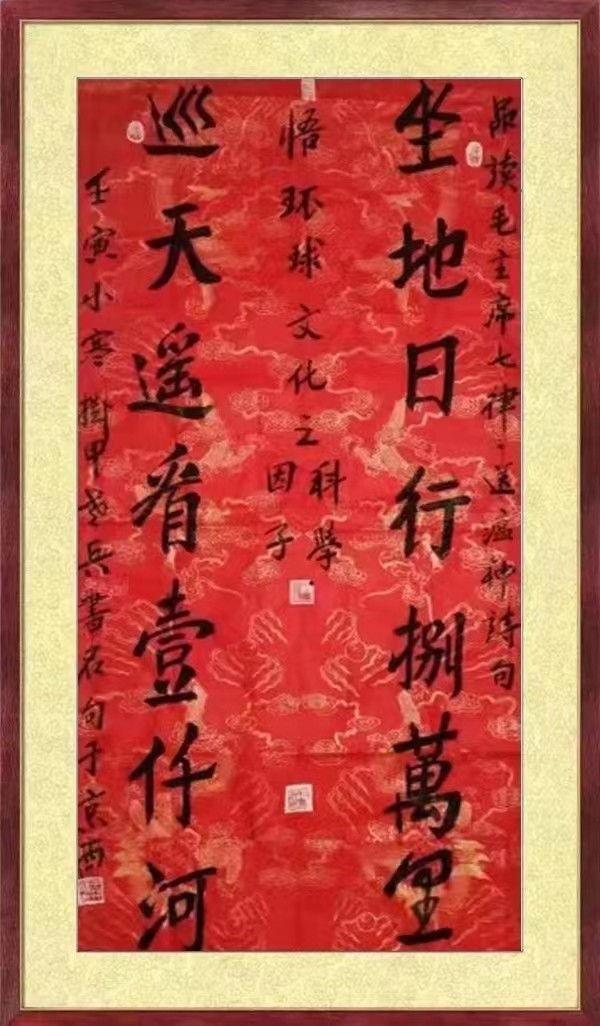 品读毛主席七律·送瘟神诗句
坐地日行捌萬里
悟环球文化之科學
因子
巡天遥看壹仟河
壬寅小寒掛甲老兵書名句于京西